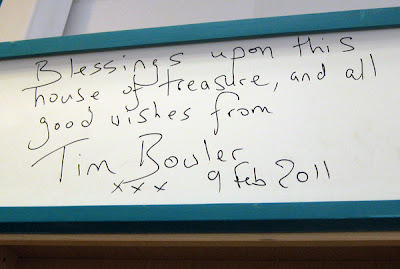 Blessings upon this
house of treasure, and all
good wishes from
Tim Bowler
xxx 9 Feb 2011